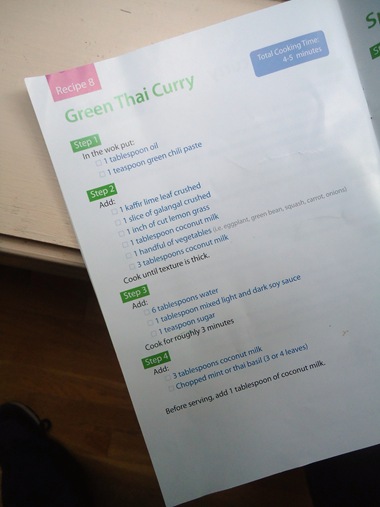 Recipe 8
Total Cooking Time:
4-5 minutes
Green Thai Curry
Step 1
In the wok put:
1 tablespoon oil
1 teaspoon green chili paste
Step 2
Add:
1 kaffir lime leaf crushed
1 slice of galangal crushed
1 inch of cut lemon grass
1 tablespoon coconut milk
1 handful of vegetables (i.e. eggplant, green bean, squash, carrot, onions)
3 tablespoons coconut milk
Cook until texture is thick.
Step 3
Add:
6 tablespoons water
1 tablespoon mixed light and dark soy sauce
1 teaspoon sugar
Cook for roughly 3 minutes
Step 4
Add:
3 tablespoons coconut milk
Chopped mint or thai basil (3 or 4 leaves)
Before serving, add 1 tablespoon of coconut milk.